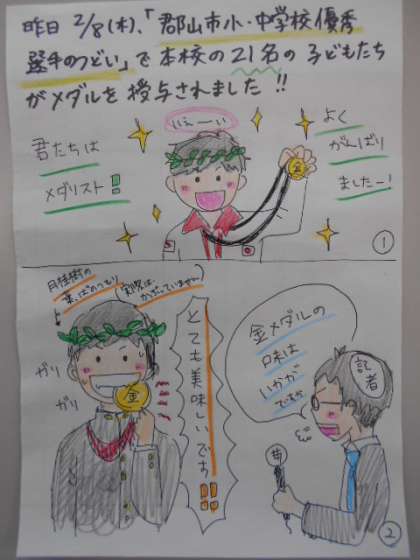 昨日 2/8(木)、「郡山市小・中学校優秀
選手のつどい」で本校の21名の子どもたち
がメダルを授与されました!!
いぇーい
君たちは
メダリスト!
よく
がんばり
ましたー!
金
①
月桂樹の
葉っぱのつもり
(実際は
かぶっていません)
ガリ
ガリ
金
とても美味しいです!!
金メダルの
味は
いかが
ですか
記者
②